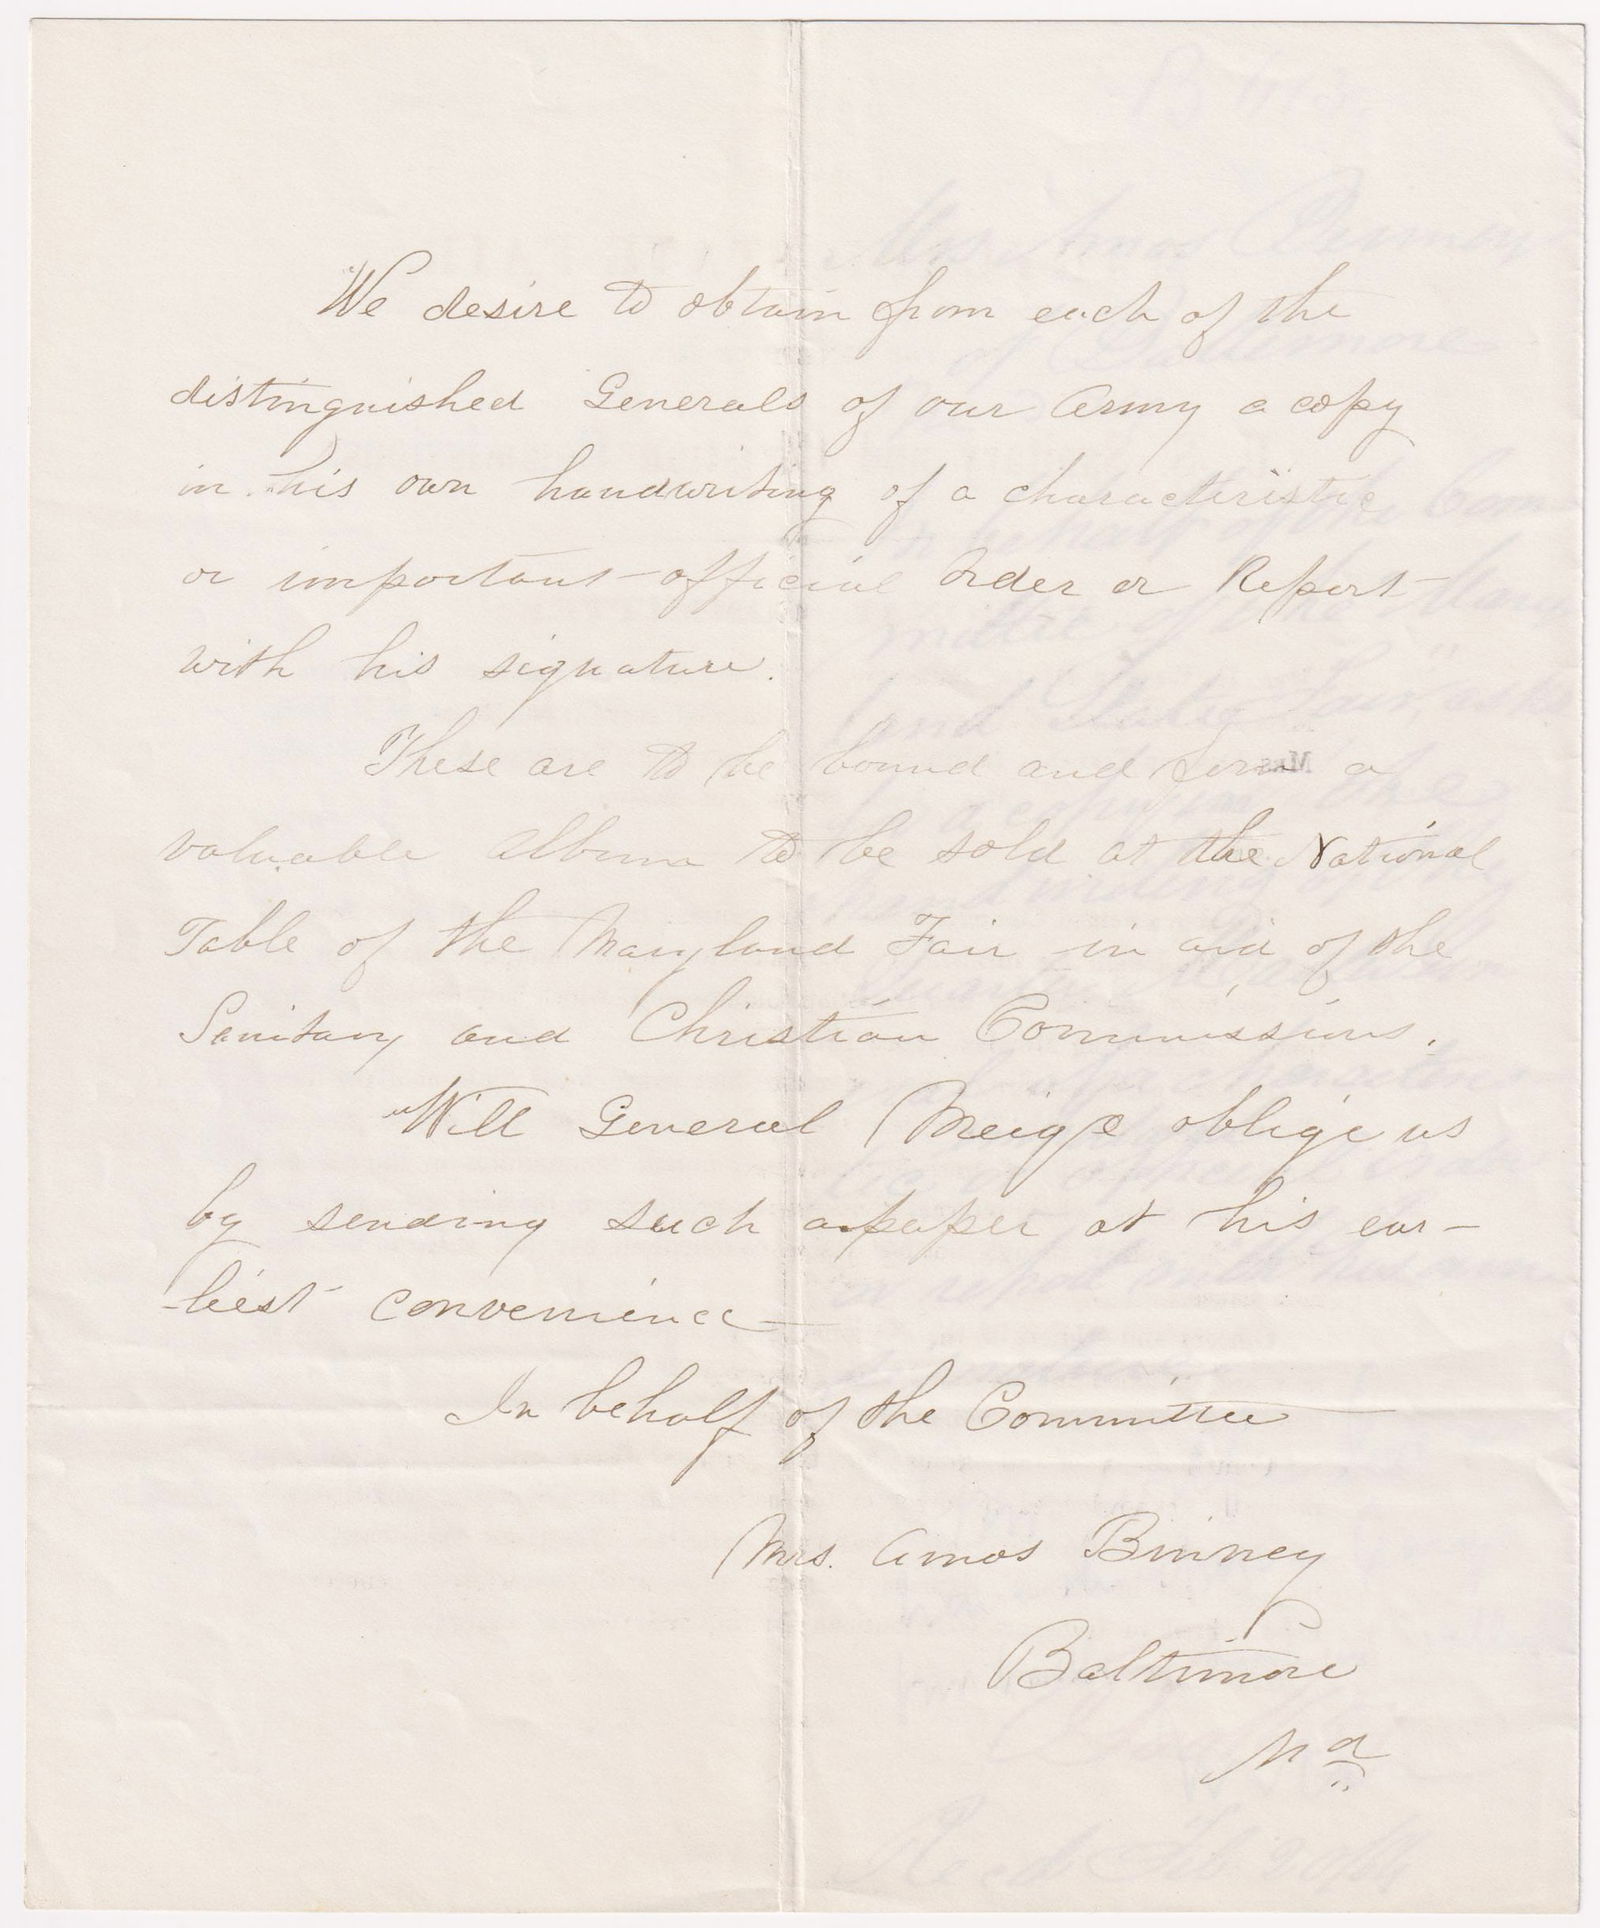 We desire to obtain from each of the
distinguished Generals of our Army a copy
in his own handwriting of a characteristic
or important official Order or Report
with his signature.
These are to be bound and form a
valuable album to be sold at the National
Table of the Maryland Fair in aid of the
Sanitary and Christian Commissions.
Will General Meigs oblige us
by sending such a paper at his ear-
-liest convenience
In behalf of the Committee
Mrs. Amos Binney
Baltimore
Md